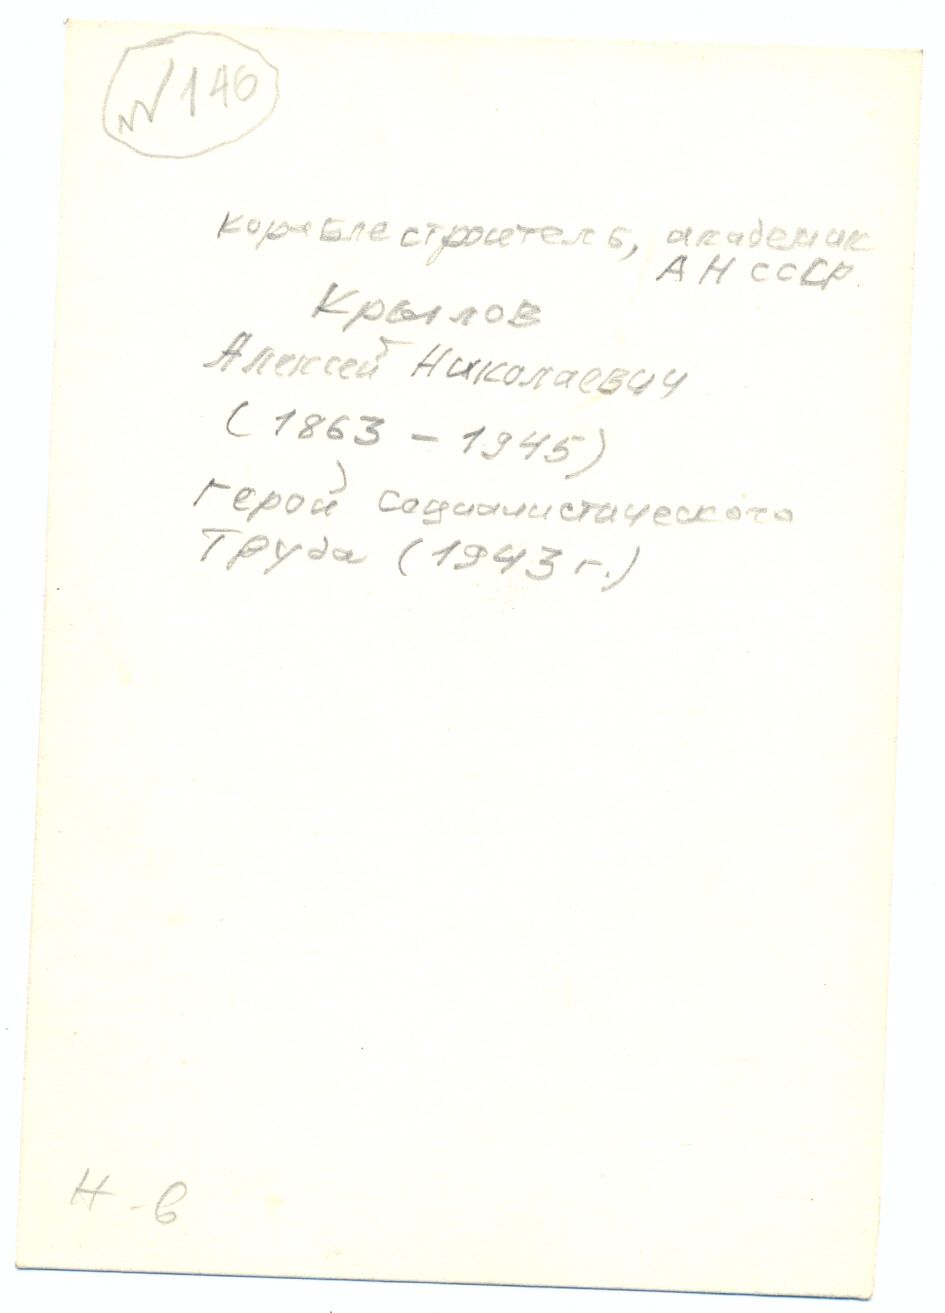 N146
Кораблестроитель, академик
АН СССР
Крылов
Алексей Николаевич
(1863 – 1945)
Герой Социалистического
Труда (1943 г.)
Н-в